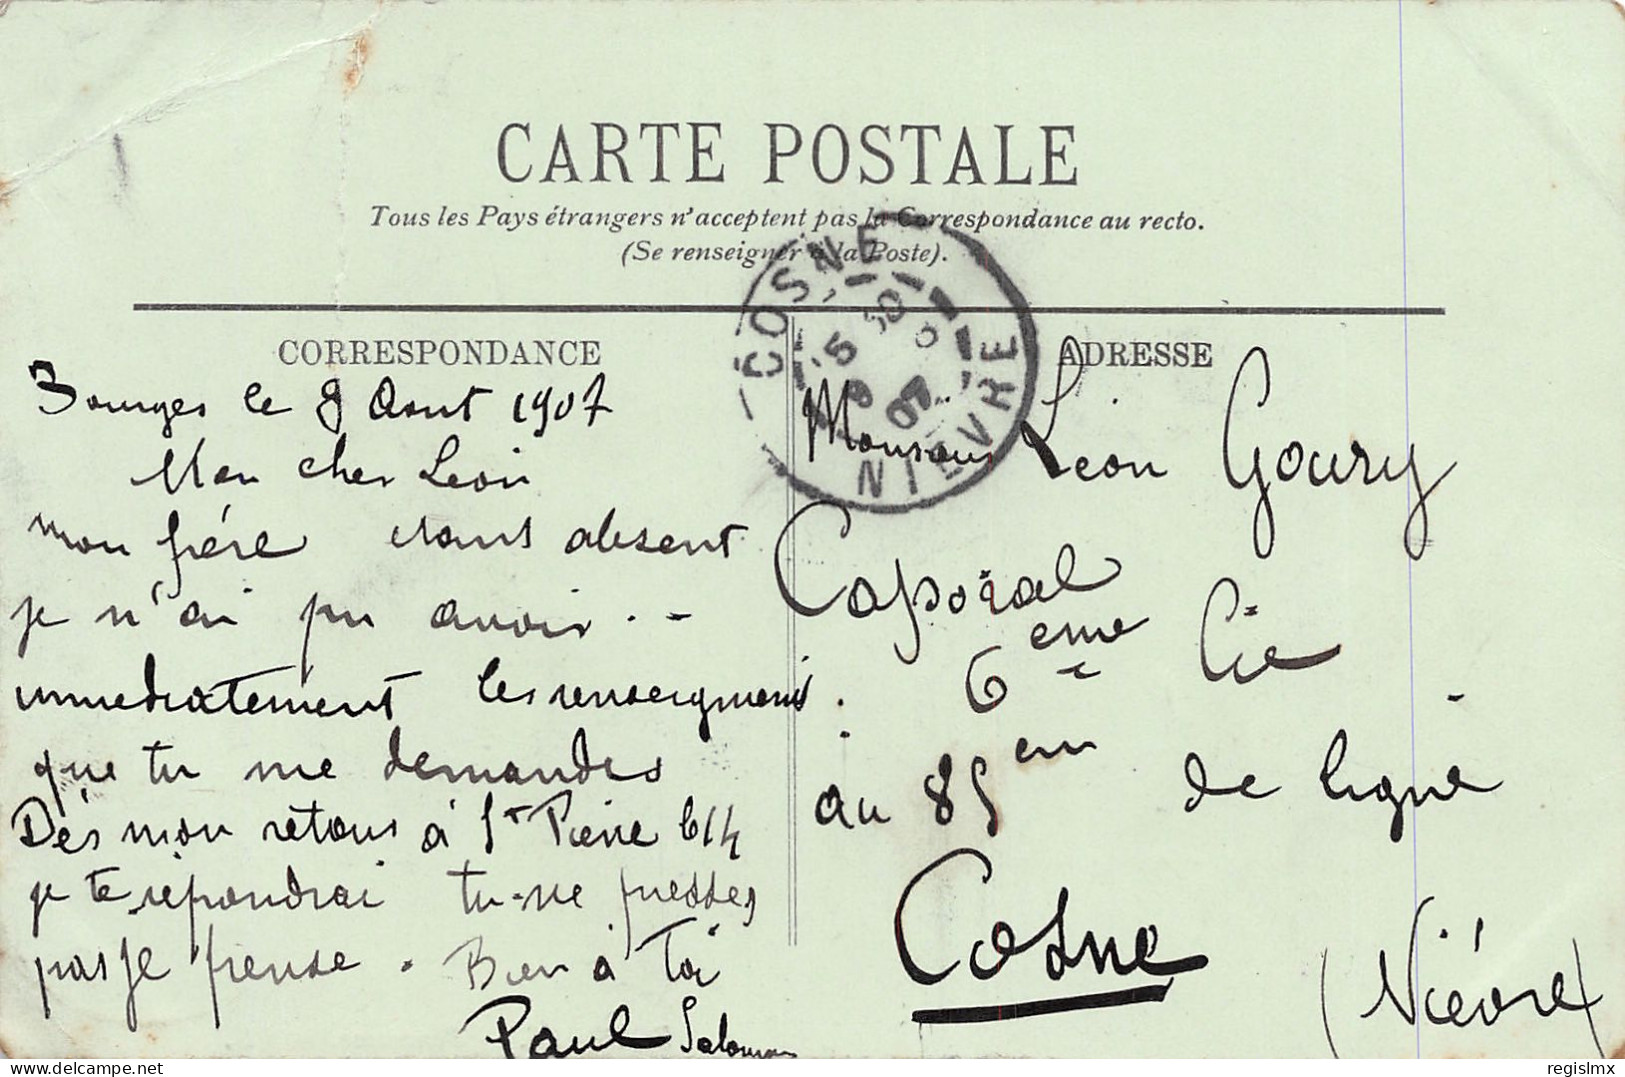 CARTE POSTALE
Tous les Pays étrangers n'acceptent pas la Correspondance au recto.
(Se renseigner à la Poste).
CORRESPONDANCE
Bourges le 9 Aout 1907
Mon cher Leon
mon frére etant absent
je n'ai pu avoir
immediatement les renseignments
que tu me demandes
Dés mon retour à St Pierre
je te répondrai tu ne presses
pas je pense. Bien à Toi
Paul Salomon
ADRESSE
Monsieur Léon Goury
Caporal
6eme Cie
au 85em de ligne
Cosne
(Nièvre)
COSNE
NIEVRE
5 30
9 8
07
delcampe.net
regislmx